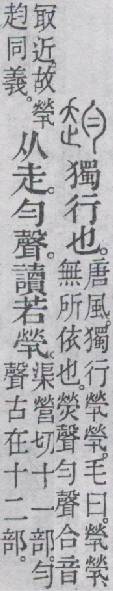 獨行也。
唐風。獨行煢煢。毛曰。煢煢、
無所依也。熒聲勻聲合音
冣近。故煢
赹同義。
从走。勻聲。讀若煢。
渠營切。十一部。勻
聲古在十二部。